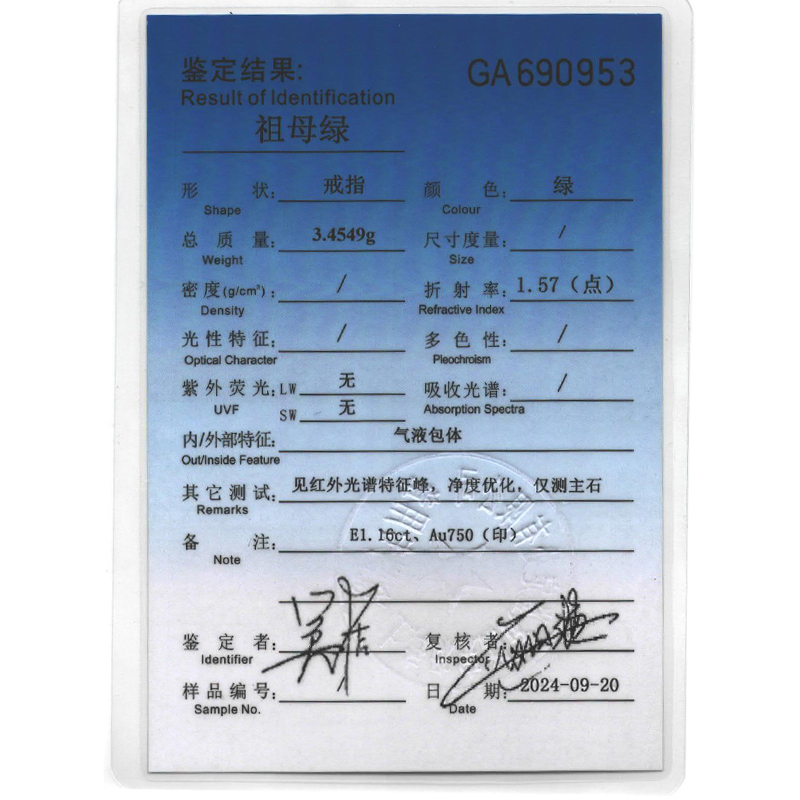 鉴定结果: GA690953
Result of Identification
祖母绿
形 状: 戒指 颜 色: 绿
Shape Colour
总 质 量: 3.4549g 尺寸度量: /
Weight Size
密度(g/cm³): / 折 射 率: 1.57（点）
Density Refractive Index
光性特征: / 多 色 性: /
Optical Character Pleochroism
紫外荧光: LW 无 吸收光谱: /
UVF SW 无 Absorption Spectra
内/外部特征: 气液包体
Out/Inside Feature
其它测试: 见红外光谱特征峰，净度优化，仅测主石
Remarks
备 注: E1.16ct、Au750（印）
Note
鉴 定 者: 复 核 者:
Identifier Inspector
样品编号: 日 期: 2024-09-20
Sample No. Date